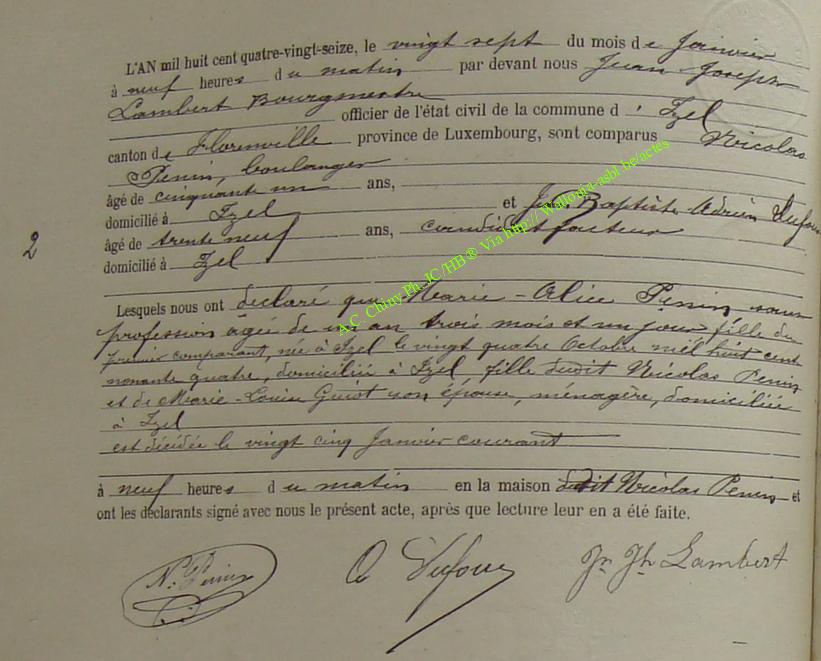 L'AN mil huit cent quatre-vingt-seize, le vingt sept du mois de Janvier
à neuf heures du matin par devant nous Jean-Joseph
Lambert Bourgmestre
officier de l'état civil de la commune d'Izel
canton de Florenville province de Luxembourg, sont comparus Nicolas
Penin, boulanger
âgé de cinquante un ans,
domicilié à Izel et Jn Baptiste-Adrien Dufour
âgé de trente neuf ans, candidat facteur
domicilié à Izel
2
Lesquels nous ont déclaré que Marie-Alice Penin, sans
profession âgée de un an, trois mois et un jour, fille du
premier comparant, née à Izel le vingt quatre Octobre mil huit cent
nonante quatre, domiciliée à Izel fille dudit Nicolas Penin
et de Marie-Louise Guiot son épouse, ménagère, domiciliée
à Izel
est décédée le vingt cinq Janvier courant
à neuf heures du matin en la maison dudit Nicolas Penin et
ont les déclarants signé avec nous le présent acte, après que lecture leur en a été faite.
N. Penin A Dufour Jn Jh Lambert
A.C Chiny Ph.JC/HB® Via http://Wallonia-asbl.be/actes